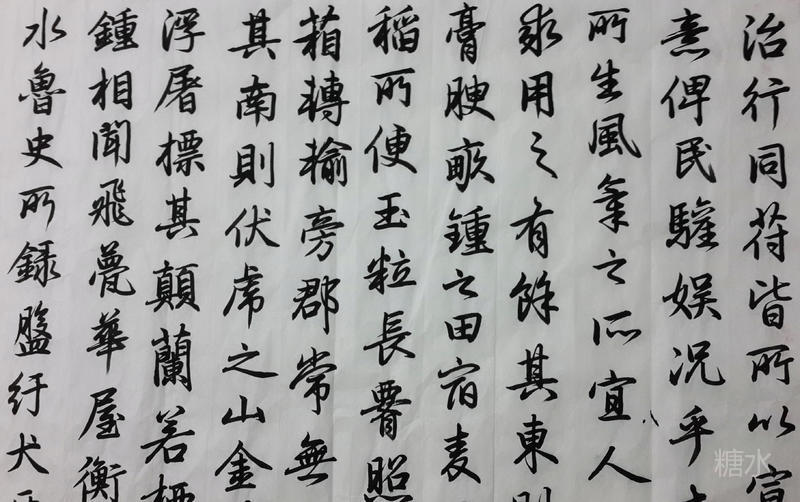 治行同符皆所以宣
熹俾民驩娱况乎
所生風氣之所宜人
求用之有餘其東則
膏腴畝鍾之田宿麦
稻所便玉粒長罾照
葙轉榆旁郡常無
其南則伏虎之山金
浮屠標其顛蘭若
鍾相聞飛甍華屋衡
水魯史所録盤紆犬
糖水